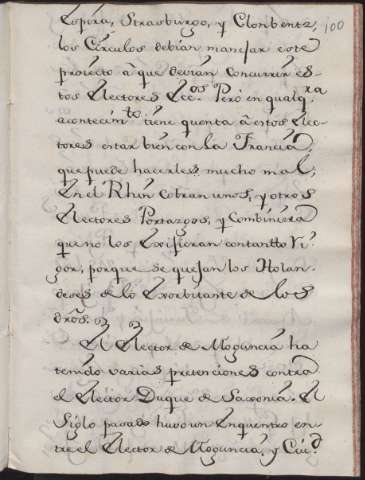 Espira, Strasburgo, y Cloribentz,
los Circulos debian manejar este
proiecto â que devian concurrir es-
tos Electores Ecc.os Però en qualq.ra
acontecim.to tiene quenta â estos Elec-
tores estar bien con la Francia,
que puede hacerles mucho mal,
En el Rhin cobran unos, y otros
Electores Portazgos, y Combiniera
que no los Exifieran contantto Ri-
gor, porque se quejan los Holan-
deses de lo Exorbitante de los
dros.
El Elector de Moguncia ha
tenido varias pretenciones contra
el Elector Duque de Saxonia. El
Siglo pasado huvo un Enquentro en
tre el Elector de Moguncia, y Ciu.d
100